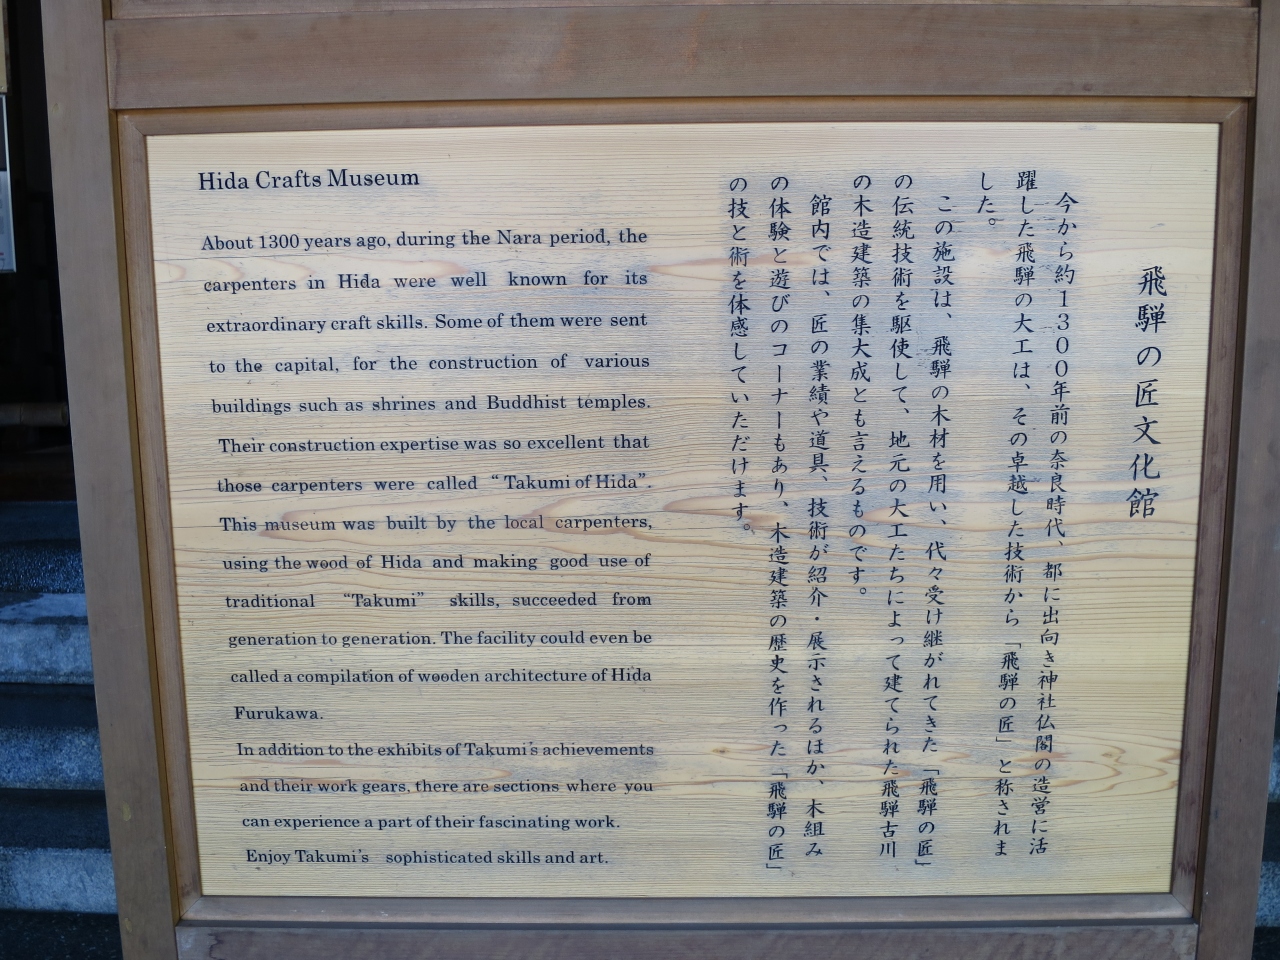 Hida Crafts Museum
About 1300 years ago, during the Nara period, the
carpenters in Hida were well known for its
extraordinary craft skills. Some of them were sent
to the capital, for the construction of various
buildings such as shrines and Buddhist temples.
Their construction expertise was so excellent that
those carpenters were called “Takumi of Hida”.
This museum was built by the local carpenters,
using the wood of Hida and making good use of
traditional “Takumi” skills, succeeded from
generation to generation. The facility could even be
called a compilation of wooden architecture of Hida
Furukawa.
In addition to the exhibits of Takumi's achievements
and their work gears, there are sections where you
can experience a part of their fascinating work.
Enjoy Takumi's sophisticated skills and art.
飛騨の匠文化館
今から約1300年前の奈良時代、都に出向き神社仏閣の造営に活
躍した飛騨の大工は、その卓越した技術から「飛騨の匠」と称されま
した。
この施設は、飛騨の木材を用い、代々受け継がれてきた「飛騨の匠」
の伝統技術を駆使して、地元の大工たちによって建てられた飛騨古川
の木造建築の集大成とも言えるものです。
館内では、匠の業績や道具、技術が紹介・展示されるほか、木組み
の体験と遊びのコーナーもあり、木造建築の歴史を作った「飛騨の匠」
の技と術を体感していただけます。